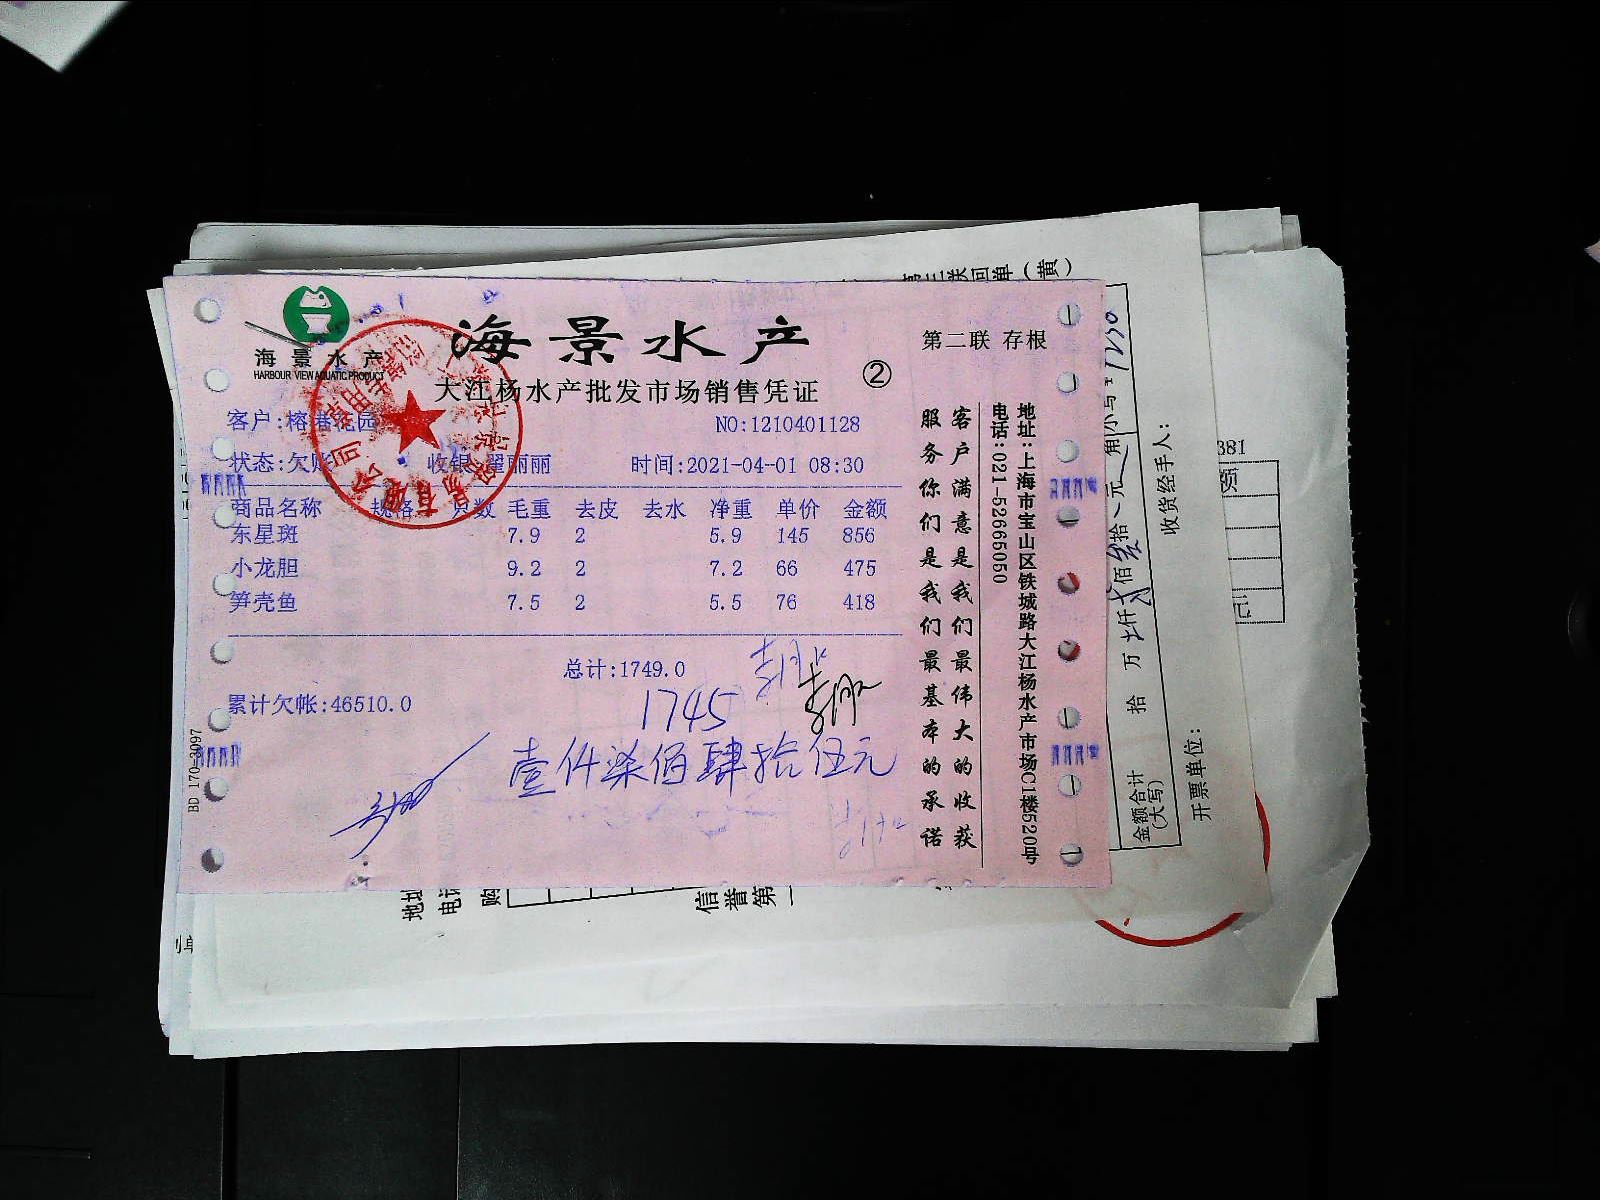 海景水产
HARBOUR VIEW AQUATIC PRODUCT
海景水产
大江杨水产批发市场销售凭证
②
第二联 存根
客户:榕巷花园
NO:1210401128
状态:欠账 收银:翟丽丽 时间:2021-04-01 08:30
商品名称 规格 只数 毛重 去皮 去水 净重 单价 金额
东星斑 7.9 2 5.9 145 856
小龙胆 9.2 2 7.2 66 475
笋壳鱼 7.5 2 5.5 76 418
总计:1749.0
累计欠帐:46510.0
1745
壹仟柒佰肆拾伍元
BD 170-3097
客户满意是我们最伟大的收获
服务你们是我们最基本的承诺
地址:上海市宝山区铁城路大江杨水产市场C1楼520号
电话:021-52665050
回单(黄)
收货经手人:
开票单位:
金额合计
(大写)
381
地址
电话
购
信誉第一